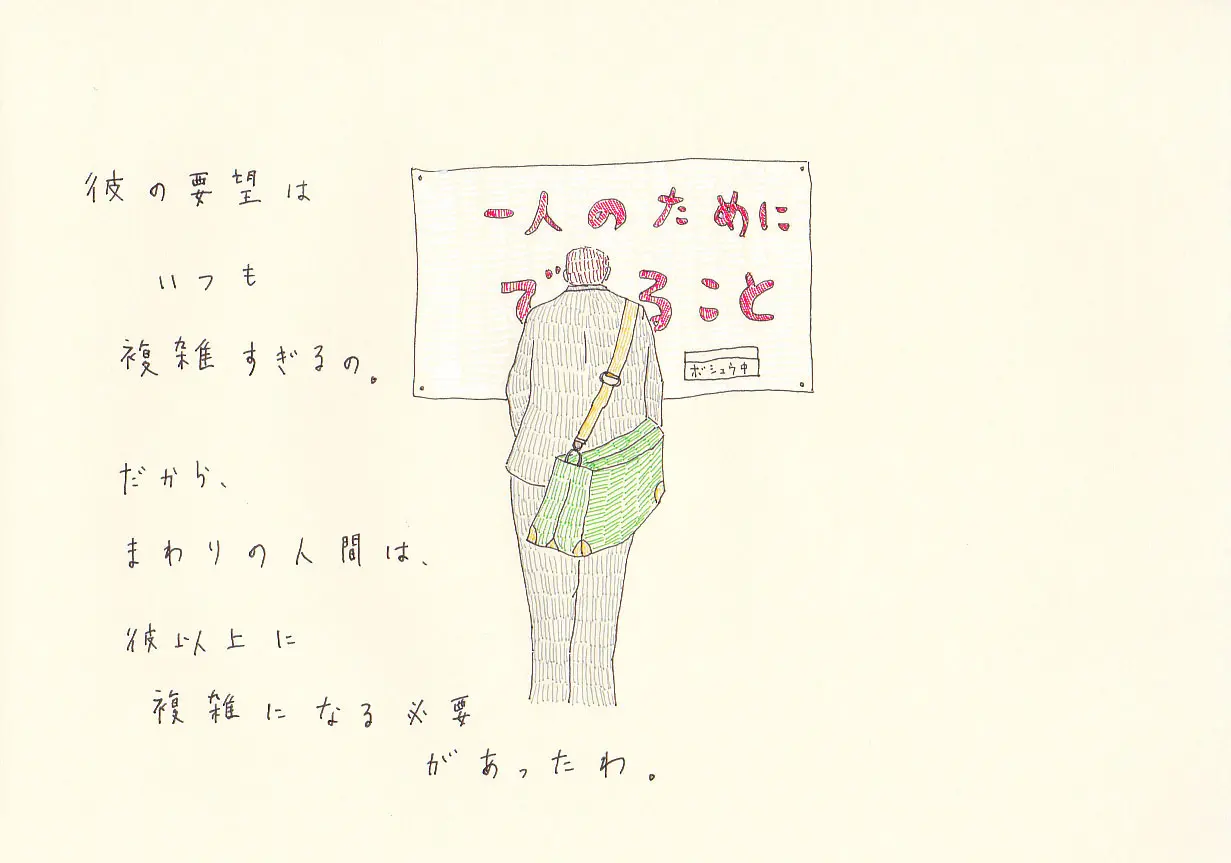 彼の要望は
いつも
複雑すぎるの。
だから、
まわりの人間は、
彼以上に
複雑になる必要
があったわ。
一人のために
で るこ と
ボシュウ中